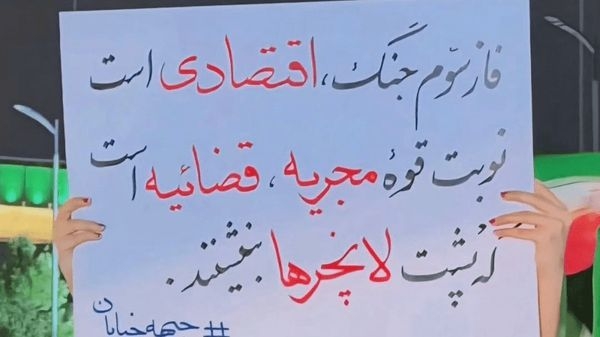 فاز سوّم جنگ، اقتصادی است
نوبت قوهٔ مجریه، قضائیه است
که پشت لانچرها بنشینند.
#جبهه_خیابان